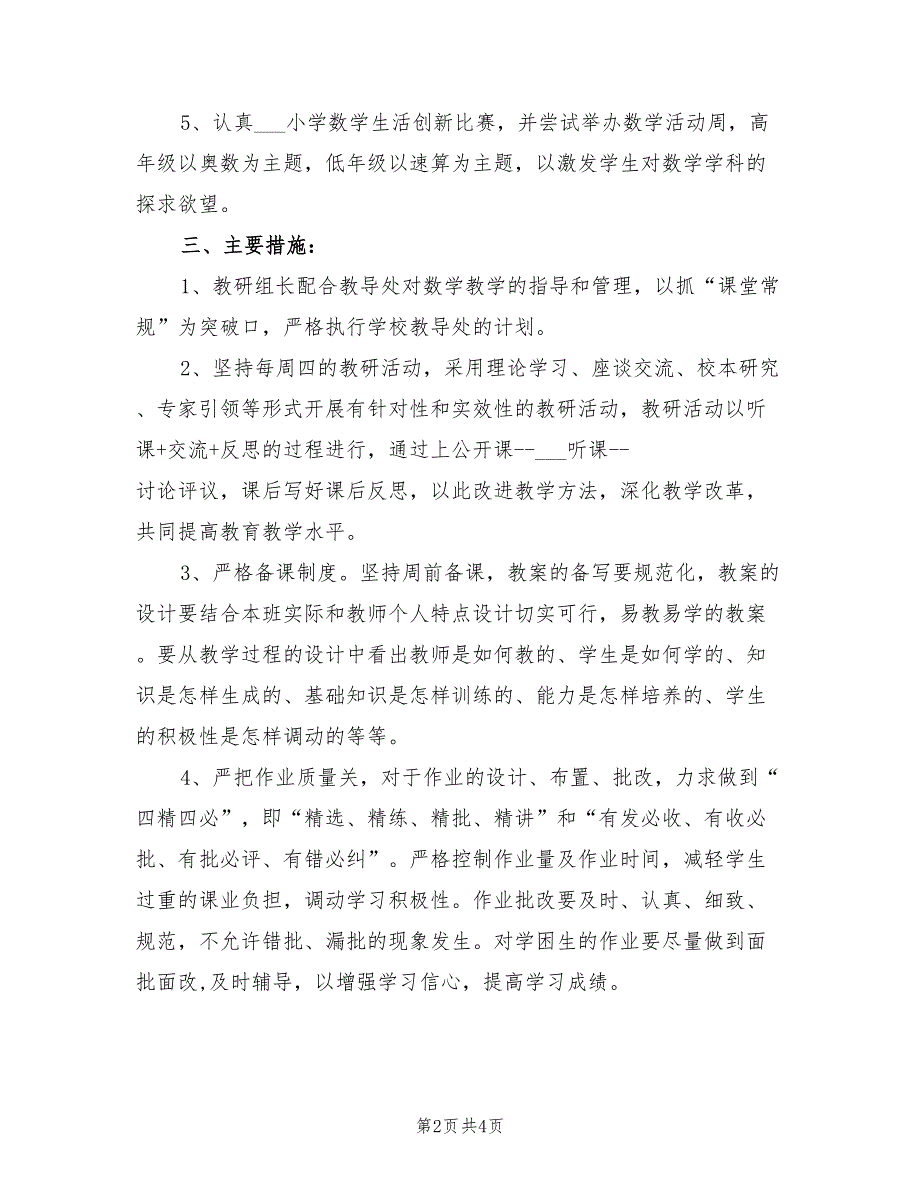 5、认真___小学数学生活创新比赛，并尝试举办数学活动周，高
年级以奥数为主题，低年级以速算为主题，以激发学生对数学学科的
探求欲望。
三、主要措施：
1、教研组长配合教导处对数学教学的指导和管理，以抓“课堂常
规”为突破口，严格执行学校教导处的计划。
2、坚持每周四的教研活动，采用理论学习、座谈交流、校本研究
、专家引领等形式开展有针对性和实效性的教研活动，教研活动以听
课+交流+反思的过程进行，通过上公开课--___听课--
讨论评议，课后写好课后反思，以此改进教学方法，深化教学改革，
共同提高教育教学水平。
3、严格备课制度。坚持周前备课，教案的备写要规范化，教案的
设计要结合本班实际和教师个人特点设计切实可行，易教易学的教案
。要从教学过程的设计中看出教师是如何教的、学生是如何学的、知
识是怎样生成的、基础知识是怎样训练的、能力是怎样培养的、学生
的积极性是怎样调动的等等。
4、严把作业质量关，对于作业的设计、布置、批改，力求做到“
四精四必”，即“精选、精练、精批、精讲”和“有发必收、有收必
批、有批必评、有错必纠”。严格控制作业量及作业时间，减轻学生
过重的课业负担，调动学习积极性。作业批改要及时、认真、细致、
规范，不允许错批、漏批的现象发生。对学困生的作业要尽量做到面
批面改,及时辅导，以增强学习信心，提高学习成绩。
第2页共4页